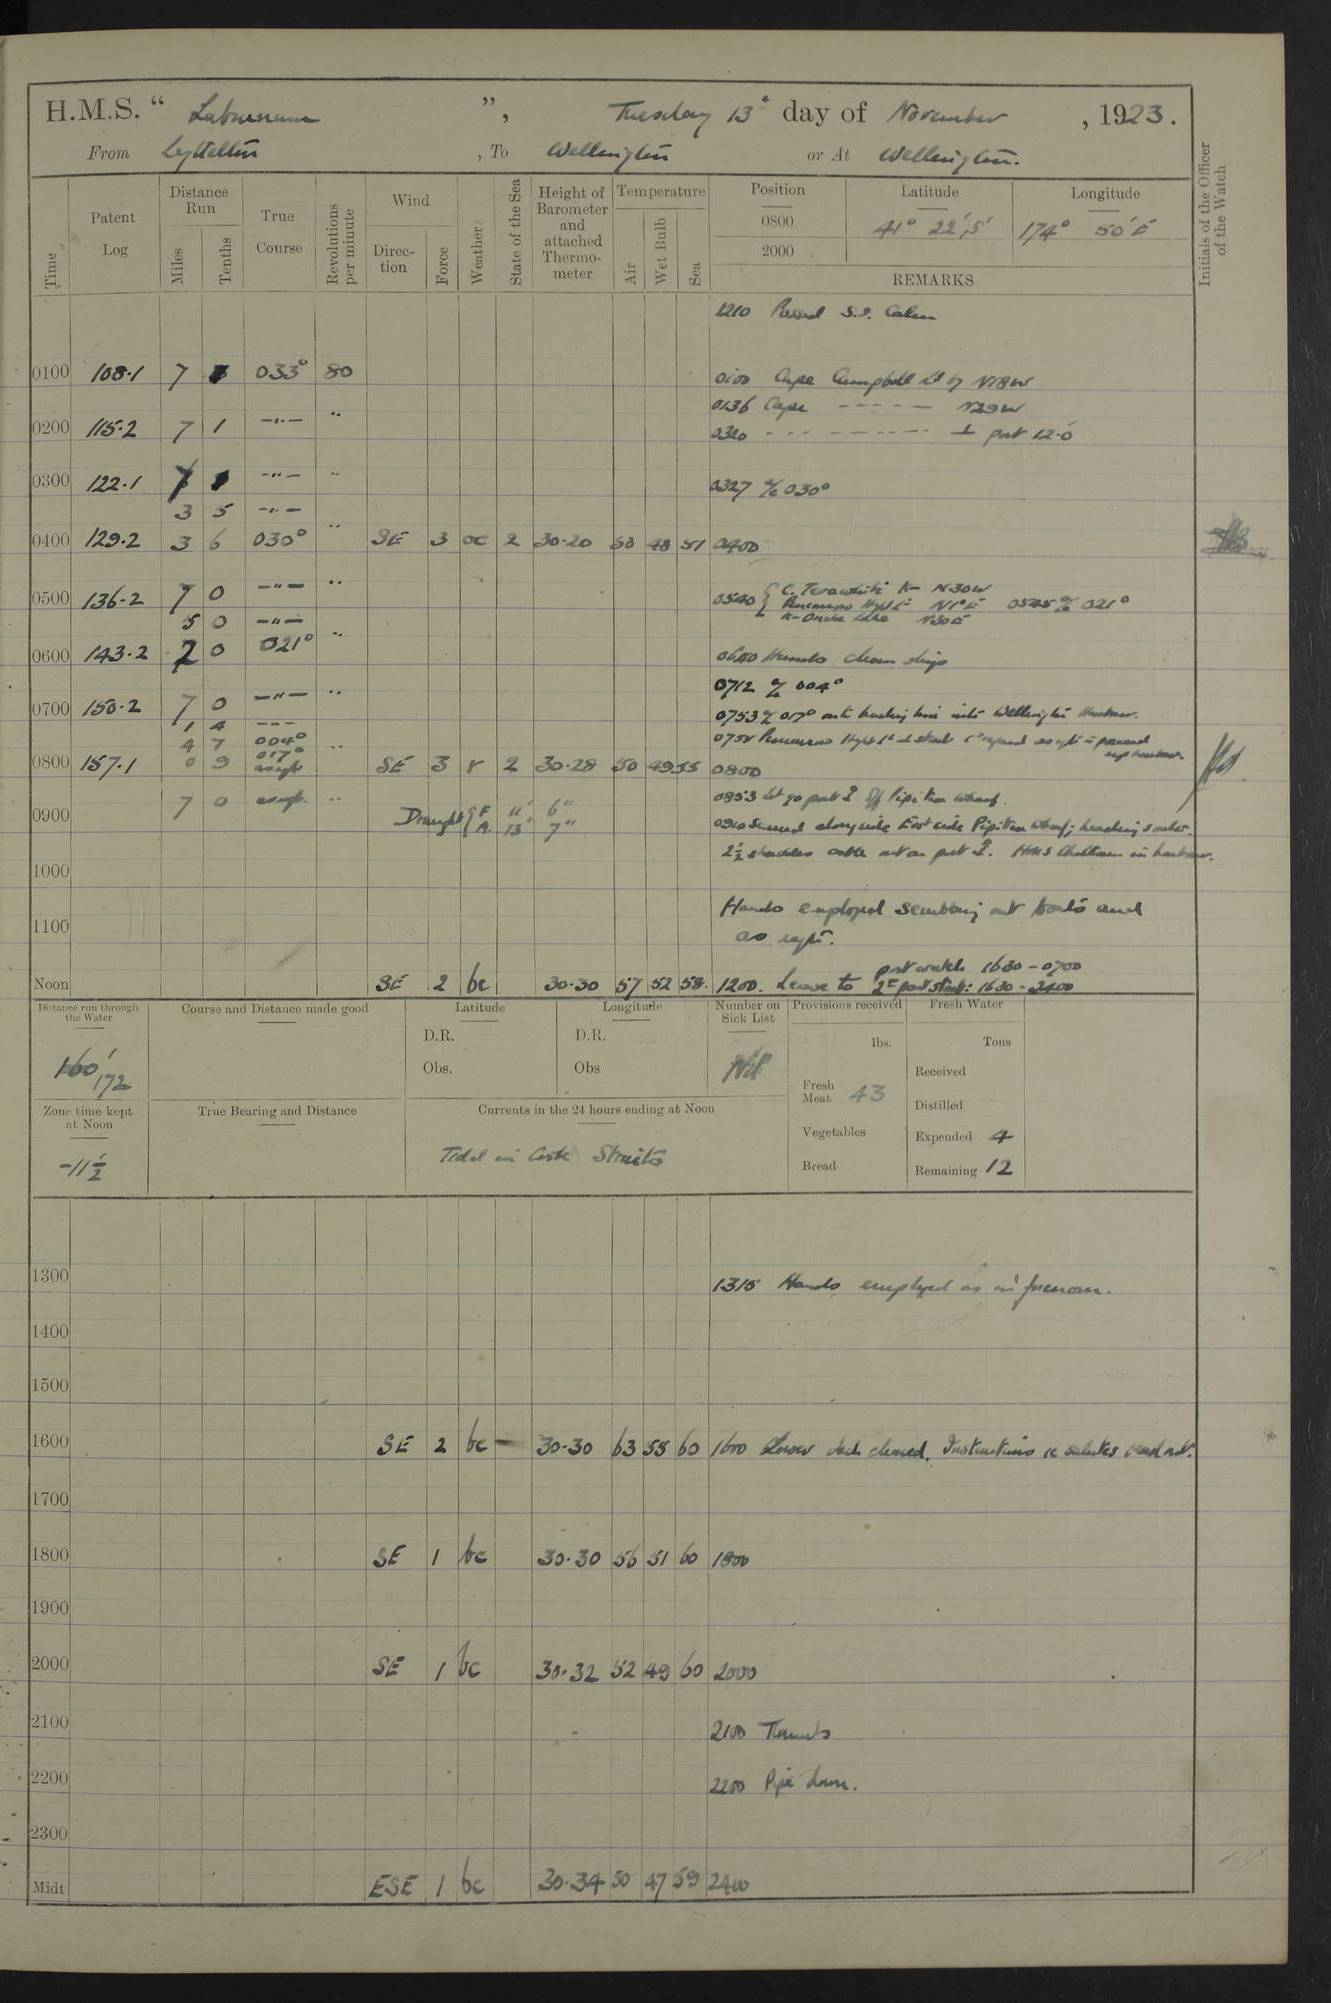 H.M.S. “ Laburnum ”, Tuesday 13th day of November, 1923.
From Lyttelton, To Wellington or At Wellington.
Time
Patent Log
Distance Run
Miles
Tenths
True Course
Revolutions per minute
Wind
Direction
Force
Weather
State of the Sea
Height of Barometer and attached Thermometer
Temperature
Air
Wet Bulb
Sea
Position
0800
2000
Latitude
41° 22'.5
Longitude
174° 50' E
REMARKS
Initials of the Officer of the Watch
1210 Passed S.S.
0100 108.1 7 033° 80 0100 Cape Campbell Lt N18W
0136 Cape - - - - - N29W
0200 115.2 7 1 -"- " 0320 - - - - - - ⊥ port 12.0
0300 122.1 -"- " 0327 a/c 030°
3 5 -"-
0400 129.2 3 6 030° " SE 3 oc 2 30.20 50 48 51 0400
0500 136.2 7 0 -"- " 0540 { C. Terawhiti N30W
Pencarrow High Lt N1°E 0545 a/c 021°
N30E
5 0 -"-
0600 143.2 2 0 021° " 0600 Hands clean ship
0712 a/c 004°
0700 150.2 7 0 -"- "
1 4 - - - 0753 a/c 017° onto leading line into Wellington Harbour.
4 7 004° " 0758 Pencarrow High Lt
0 9 017°
up harbour.
0800 157.1 as reqte SE 3 r 2 30.28 50 49 55 0800
7 0 as reqte " 0853 Let go port ⚓ off Pipitea Wharf.
0900 Draught { F 11' 6"
A. 13' 7"
0910 Secured alongside East side Pipitea Wharf; heading
2½ shackles cable out on port ⚓. HMS Chatham in harbour.
1000
Hands employed scrubbing out boats and
1100 as reqte.
Noon SE 2 bc 30.30 57 52 58. 1200. Leave to port watch 1630 - 0700
2nd part Starbd: 1630 - 2400
Distance run through the Water
160' 172
Zone time kept at Noon
-11½
Course and Distance made good
True Bearing and Distance
Latitude
D.R.
Obs.
Longitude
D.R.
Obs
Currents in the 24 hours ending at Noon
Tidal in Cook Straits
Number on Sick List
Nil
Provisions received
lbs.
Fresh Meat 43
Vegetables
Bread
Fresh Water
Tons
Received
Distilled
Expended 4
Remaining 12
1300 1315 Hands employed as in forenoon.
1400
1500
1600 SE 2 bc - 30.30 63 55 60 1600 Lower deck cleared. Instructions re salutes read out.
1700
1800 SE 1 bc 30.30 56 51 60 1800
1900
2000 SE 1 bc 30.32 52 49 60 2000
2100 2100 Rounds
2200 2200 Pipe down.
2300
Midt ESE 1 bc 30.34 50 47 59 2400